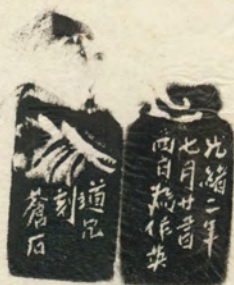 光緒二年
七月廿
為作英
道兄
刻
蒼石